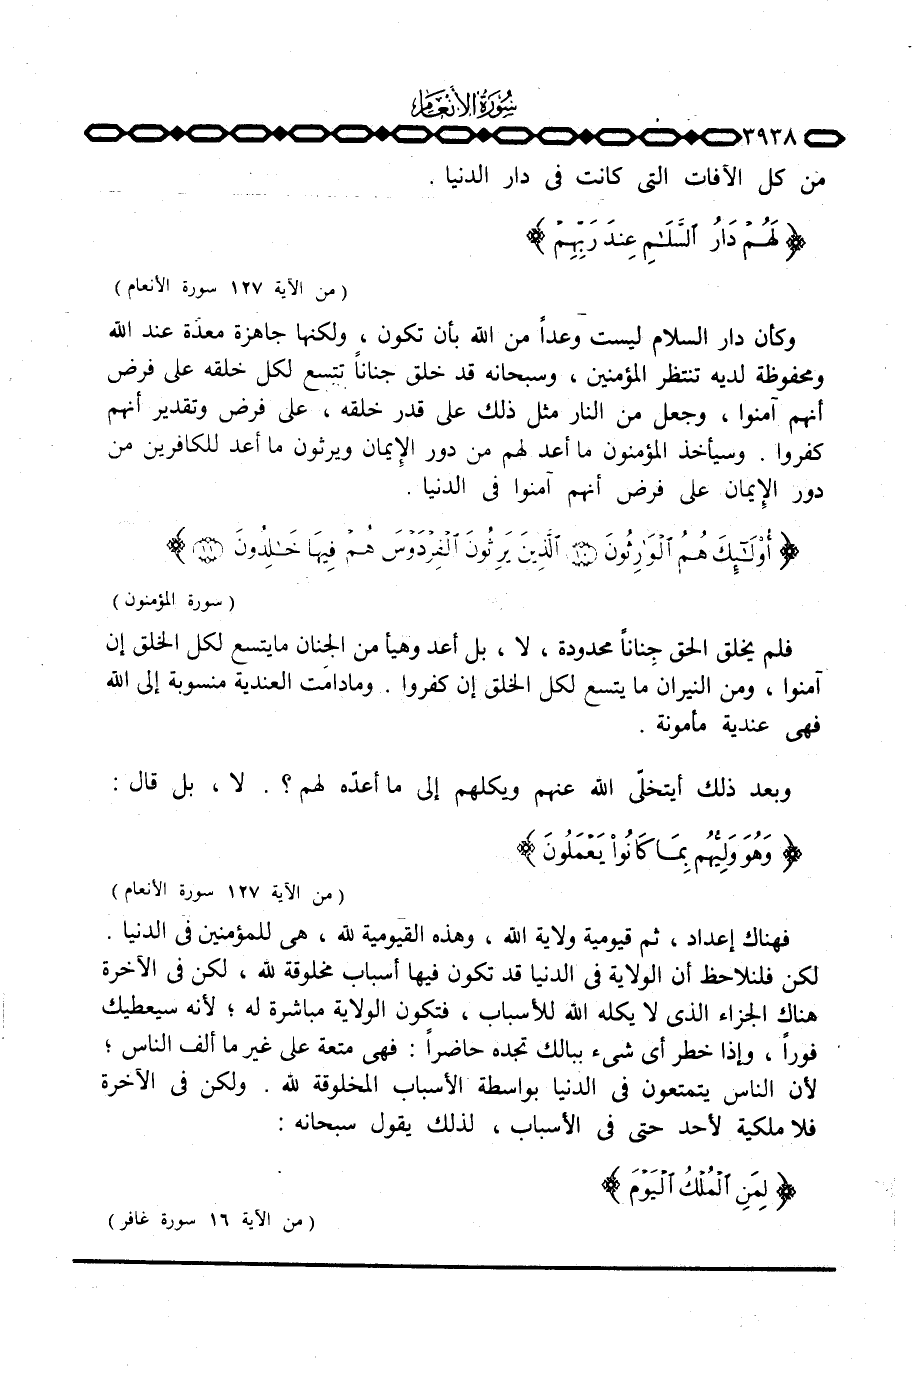 سُورَةُ الأَنْعَام
٣٩٣٨
من كل الآفات التى كانت فى دار الدنيا .
﴿ لَهُمْ دَارُ ٱلسَّلَٰمِ عِندَ رَبِّهِمْ ﴾
( من الآية ١٢٧ سورة الأنعام )
وكأن دار السلام ليست وعداً من الله بأن تكون ، ولكنها جاهزة معدّة عند الله
ومحفوظة لديه تنتظر المؤمنين ، وسبحانه قد خلق جناناً تتسع لكل خلقه على فرض
أنهم آمنوا ، وجعل من النار مثل ذلك على قدر خلقه ، على فرض وتقدير أنهم
كفروا . وسيأخذ المؤمنون ما أعد لهم من دور الإيمان ويرثون ما أعد للكافرين من
دور الإيمان على فرض أنهم آمنوا فى الدنيا .
﴿ أُوْلَٰٓئِكَ هُمُ ٱلْوَٰرِثُونَ ١٠ ٱلَّذِينَ يَرِثُونَ ٱلْفِرْدَوْسَ هُمْ فِيهَا خَٰلِدُونَ ١١ ﴾
( سورة المؤمنون )
فلم يخلق الحق جِناناً محدودة ، لا ، بل أعد وهيأ من الجنان مايتسع لكل الخلق إن
آمنوا ، ومن النيران ما يتسع لكل الخلق إن كفروا . ومادامت العندية منسوبة إلى الله
فهى عندية مأمونة .
وبعد ذلك أيتخلّى الله عنهم ويكلهم إلى ما أعدّه لهم ؟ . لا ، بل قال :
﴿ وَهُوَ وَلِيُّهُم بِمَا كَانُواْ يَعْمَلُونَ ﴾
( من الآية ١٢٧ سورة الأنعام )
فهناك إعداد ، ثم قيومية ولاية الله ، وهذه القيومية لله ، هى للمؤمنين فى الدنيا .
لكن فلنلاحظ أن الولاية فى الدنيا قد تكون فيها أسباب مخلوقة لله ، لكن فى الآخرة
هناك الجزاء الذى لا يكله الله للأسباب ، فتكون الولاية مباشرة له ؛ لأنه سيعطيك
فوراً ، وإذا خطر أى شىء ببالك تجده حاضراً : فهى متعة على غير ما ألف الناس ؛
لأن الناس يتمتعون فى الدنيا بواسطة الأسباب المخلوقة لله . ولكن فى الآخرة
فلا ملكية لأحد حتى فى الأسباب ، لذلك يقول سبحانه :
﴿ لِّمَنِ ٱلْمُلْكُ ٱلْيَوْمَ ﴾
( من الآية ١٦ سورة غافر )